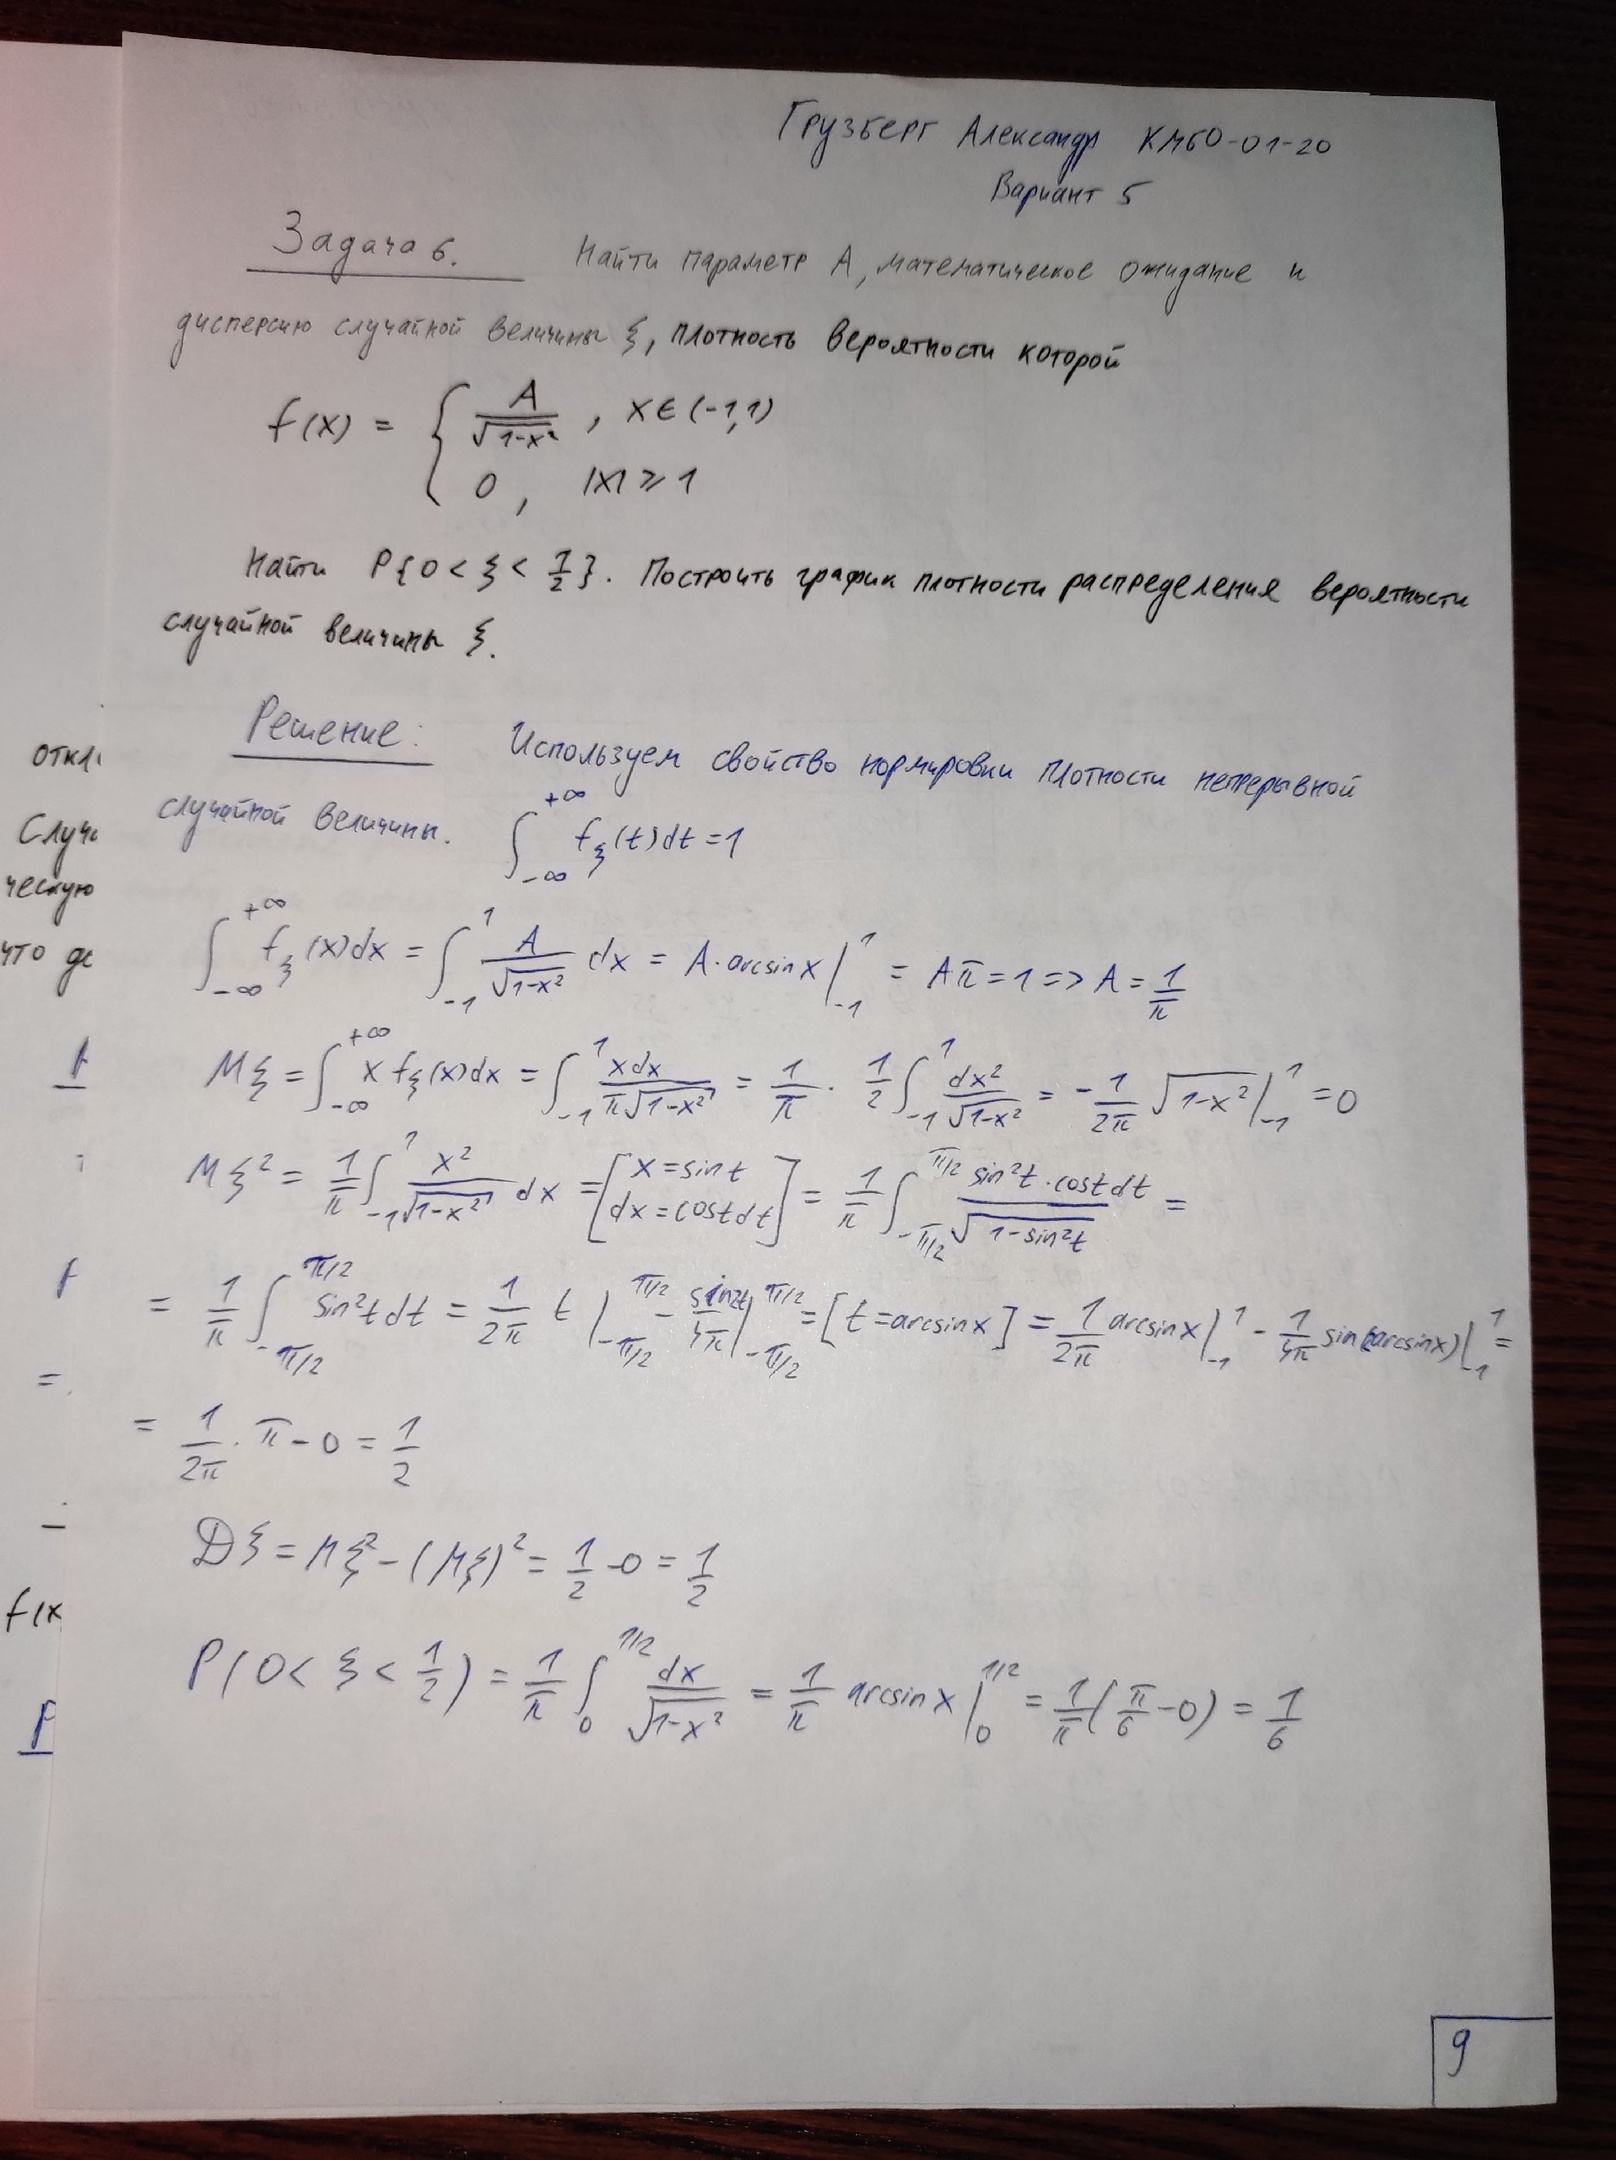 Грузберг Александр КМБО-01-20
Вариант 5
Задача 6. Найти параметр А, математическое ожидание и
дисперсию случайной величины ξ, плотность вероятности которой
f(x) = { A/√(1-x²) , x∈(-1,1)
0 , |x| ≥ 1
Найти P{0 < ξ < 1/2}. Построить график плотности распределения вероятности
случайной величины ξ.
Решение: Используем свойство нормировки плотности непрерывной
случайной величины. ∫_{-∞}^{+∞} f_ξ(t)dt = 1
∫_{-∞}^{+∞} f_ξ(x)dx = ∫_{-1}^{1} A/√(1-x²) dx = A·arcsinx |_{-1}^{1} = Aπ = 1 => A = 1/π
Mξ = ∫_{-∞}^{+∞} x f_ξ(x)dx = ∫_{-1}^{1} xdx/(π√(1-x²)) = 1/π · 1/2 ∫_{-1}^{1} dx²/√(1-x²) = -1/(2π) √(1-x²) |_{-1}^{1} = 0
Mξ² = 1/π ∫_{-1}^{1} x²/√(1-x²) dx = [x = sint dx = costdt] = 1/π ∫_{-π/2}^{π/2} sin²t·costdt/√(1-sin²t) =
= 1/π ∫_{-π/2}^{π/2} sin²tdt = 1/(2π) t |_{-π/2}^{π/2} - sin2t/(4π) |_{-π/2}^{π/2} = [t = arcsinx] = 1/(2π) arcsinx |_{-1}^{1} - 1/(4π) sin(2arcsinx) |_{-1}^{1} =
= 1/(2π) · π - 0 = 1/2
Dξ = Mξ² - (Mξ)² = 1/2 - 0 = 1/2
P(0 < ξ < 1/2) = 1/π ∫_{0}^{1/2} dx/√(1-x²) = 1/π arcsinx |_{0}^{1/2} = 1/π (π/6 - 0) = 1/6
9
откл
Случ
ческую
что де
f(x